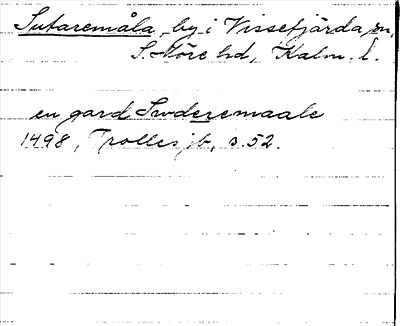 Sutaremåla, by i Vissefjärda sn,
S. Möre hd, Kalm. l.
en gard Swderemaale
1498, Trolles jb, s. 52.